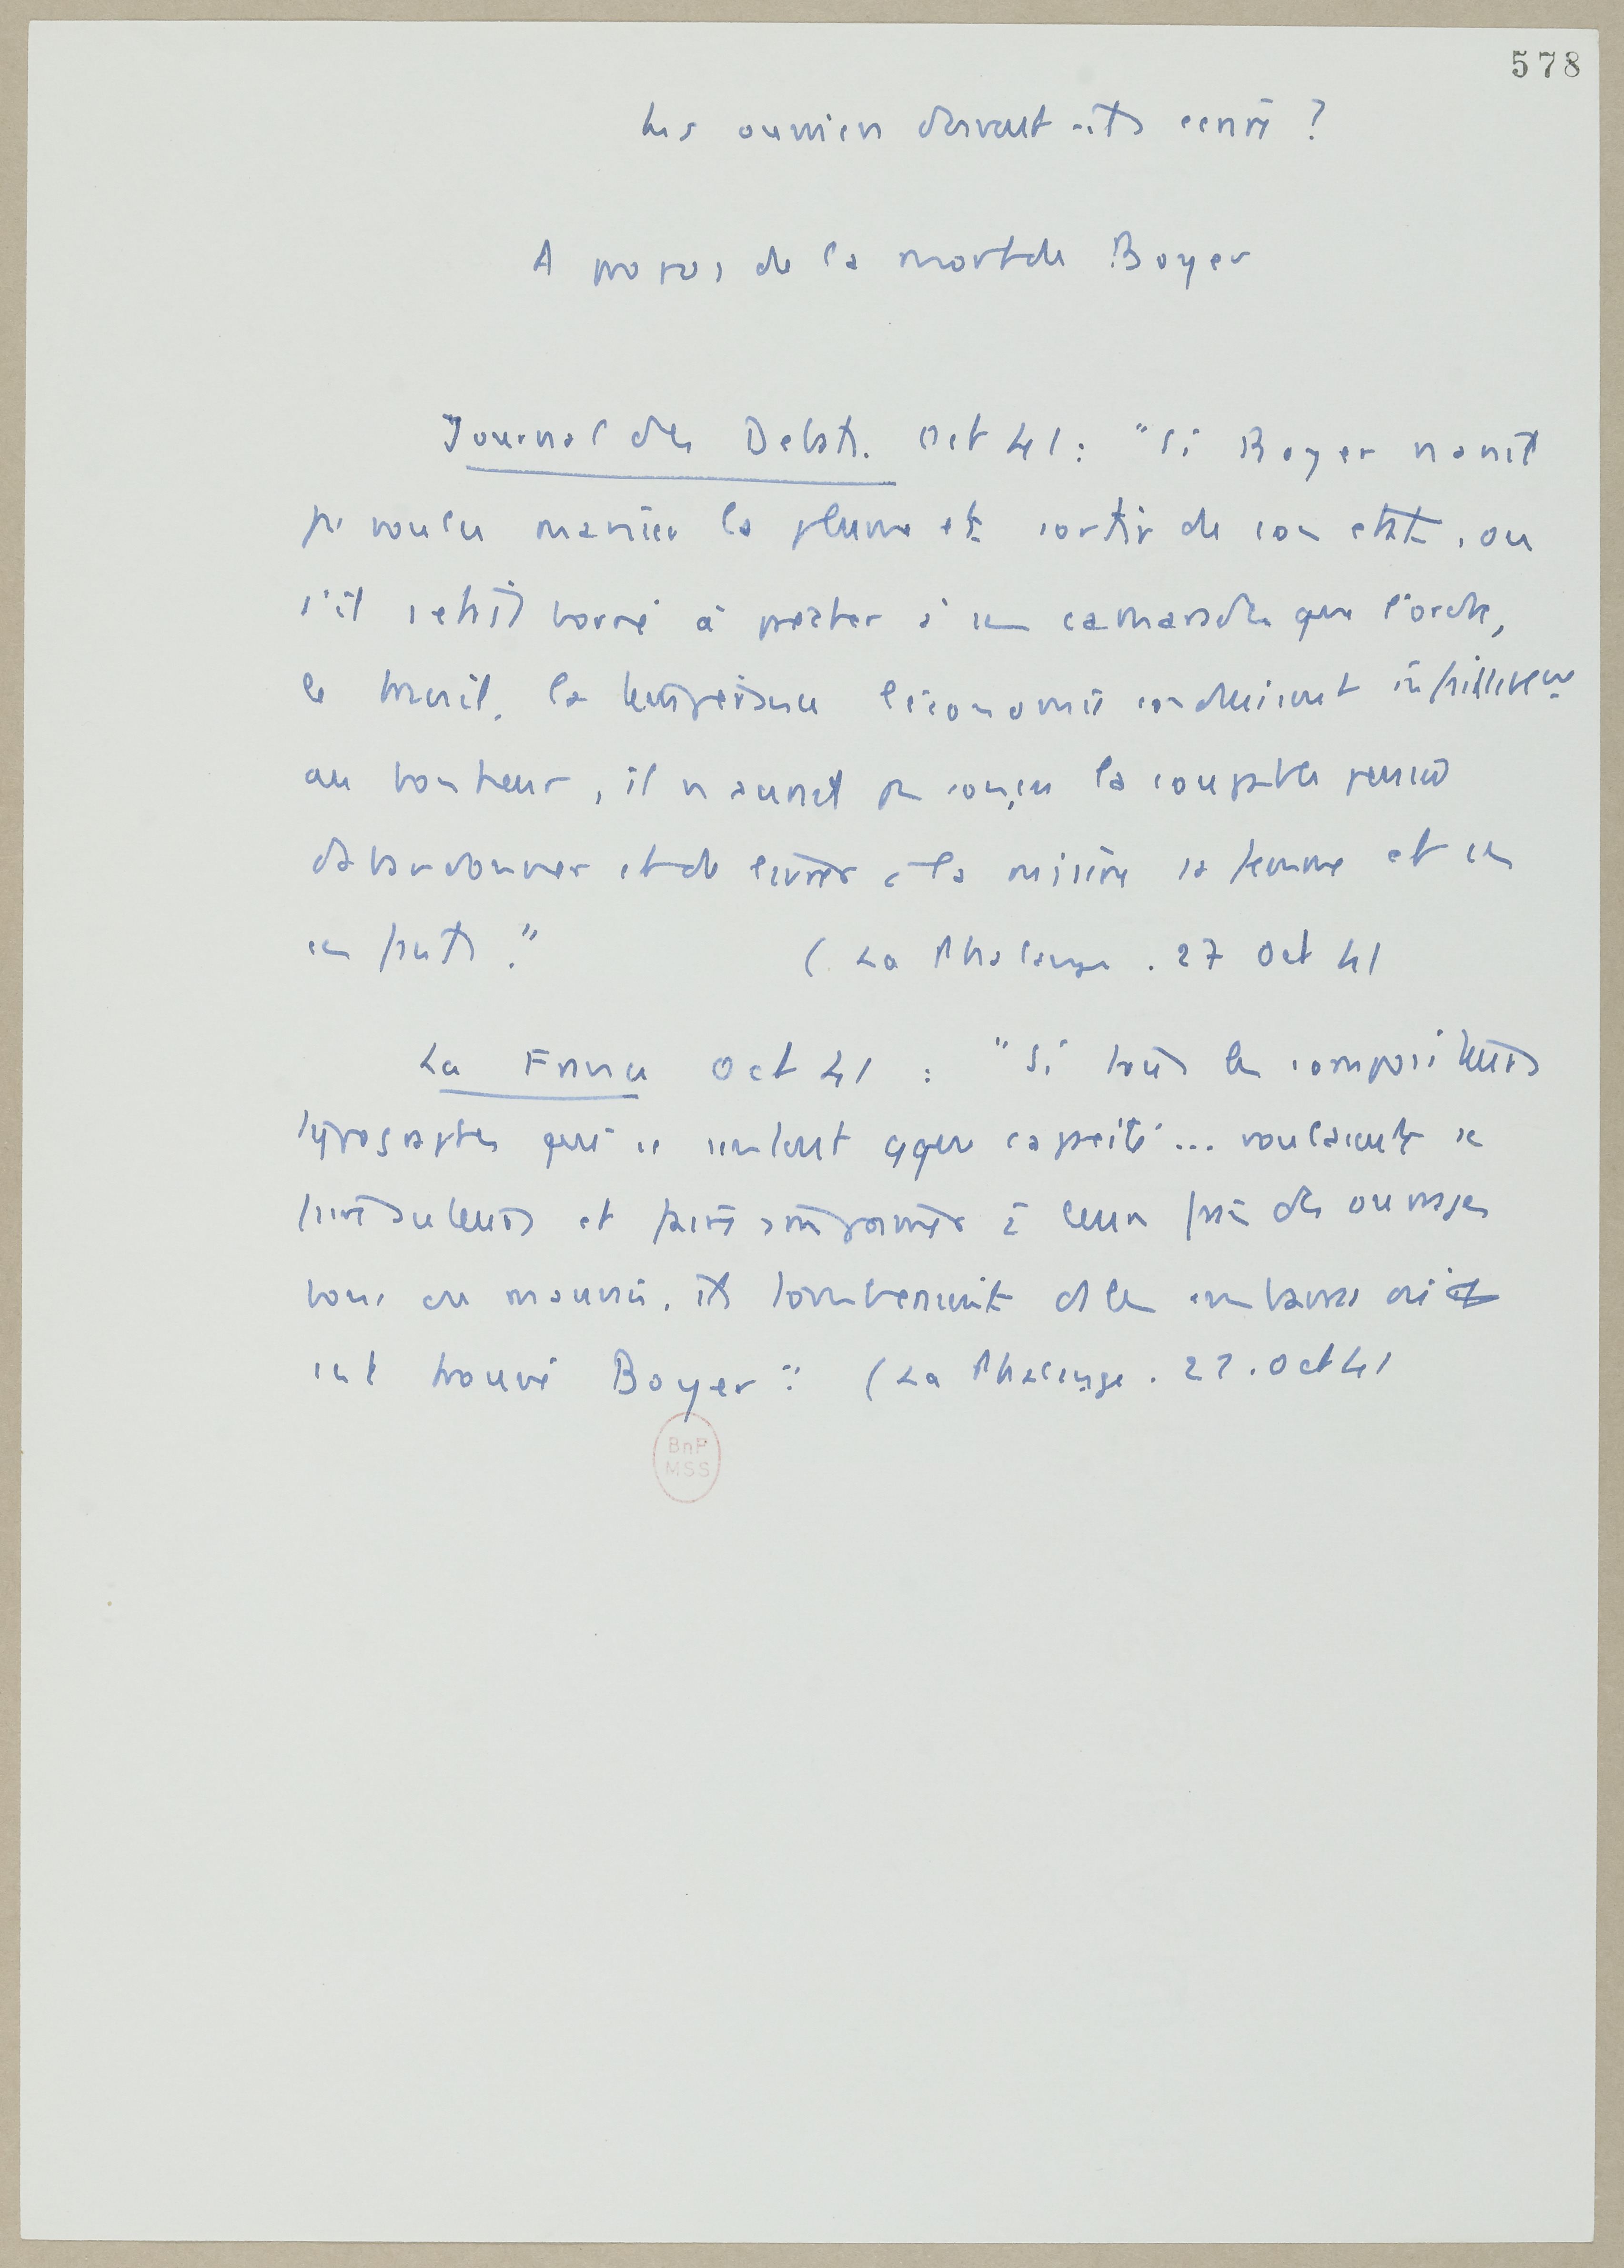 578
Les ouvriers doivent-ils écrire ?
A propos de la mort de Boyer
Journal des Debats. Oct 41 : "Si Boyer n'avait
pas voulu manier la plume et sortir de son état, ou
s'il s'était borné à prêcher à ses camarades que l'ordre,
le travail, la tempérance l'économie conduisent infailliblement
au bonheur, il n'aurait pas conçu la coupable pensée
d'abandonner et de livrer à la misère sa femme et ses
enfants." (La Phalange. 27 Oct 41
La France Oct 41 : "Si tous les compositeurs
typographes qui se sentent qque capacité... voulaient se
faire auteurs et faire imprimer à leurs frais des ouvrages
bons ou mauvais, ils tomberaient ds les embarras où
s'est trouvé Boyer" (La Phalange. 27. Oct 41
BnF
MSS